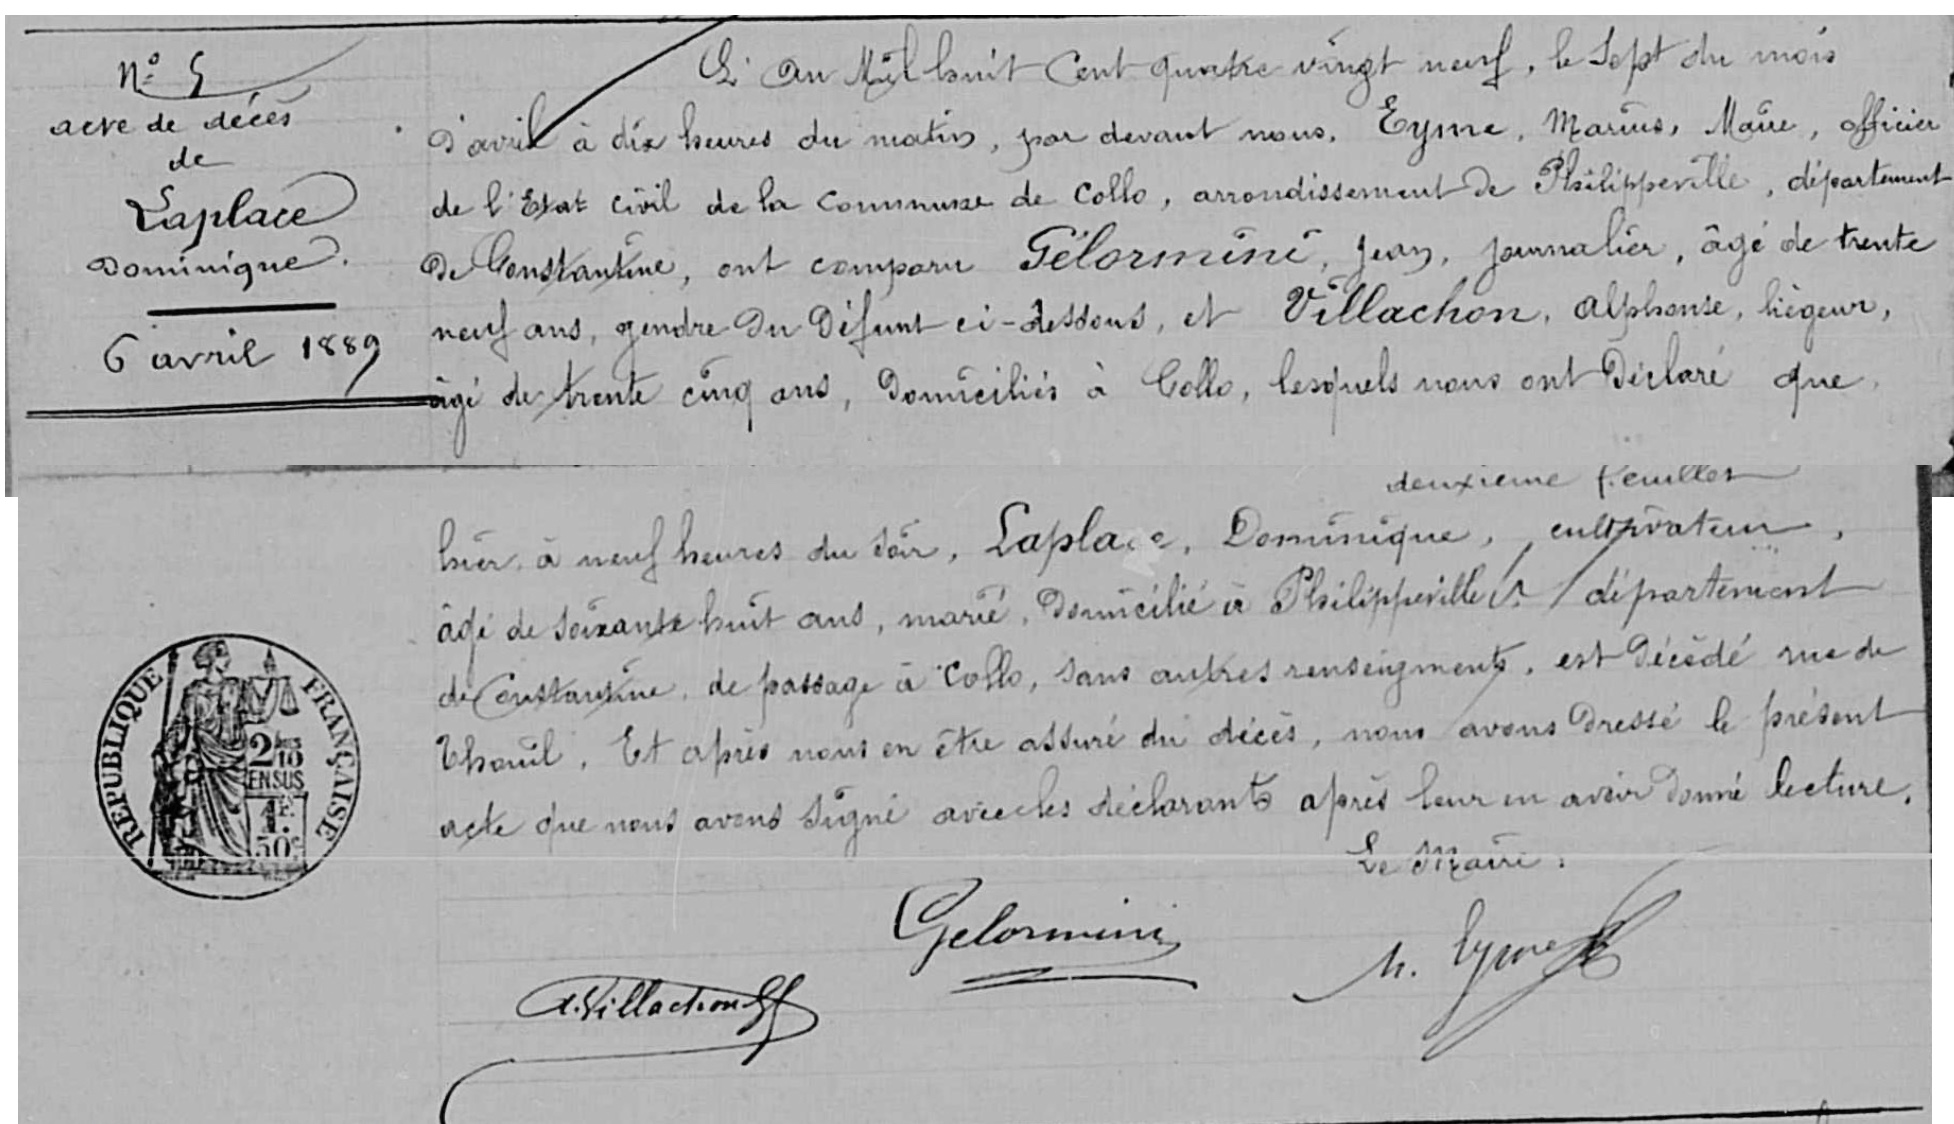 N° 5
acte de décès
de
Laplace
Dominique.
6 avril 1889
L'an Mil huit Cent quatre vingt neuf, le Sept du mois
d'avril à dix heures du matin, par devant nous, Eyme, Marius, Maire, officier
de l'Etat Civil de la Commune de Collo, arrondissement de Philippeville, département
de Constantine, ont comparu Gélormini, Jean, journalier, âgé de trente
neuf ans, gendre du Défunt ci-dessous, et Villachon, Alphonse, liègeur,
âgé de trente cinq ans, Domiciliés à Collo, lesquels nous ont Déclaré que
deuxième feuillet
hier, à neuf heures du soir, Laplace, Dominique, cultivateur,
âgé de soixante huit ans, marié, Domicilié à Philippeville, département
de Constantine, de passage à Collo, sans autres renseigments, est Décédé rue de
. Et après nous en être assuré du décès, nous avons Dressé le présent
acte que nous avons Signé avec les déclarants après leur en avoir Donné lecture.
Le Maire:
Gelormini
A. Villachon
M. Eyme
RÉPUBLIQUE FRANÇAISE
2/10
EN SUS
1F.
50c